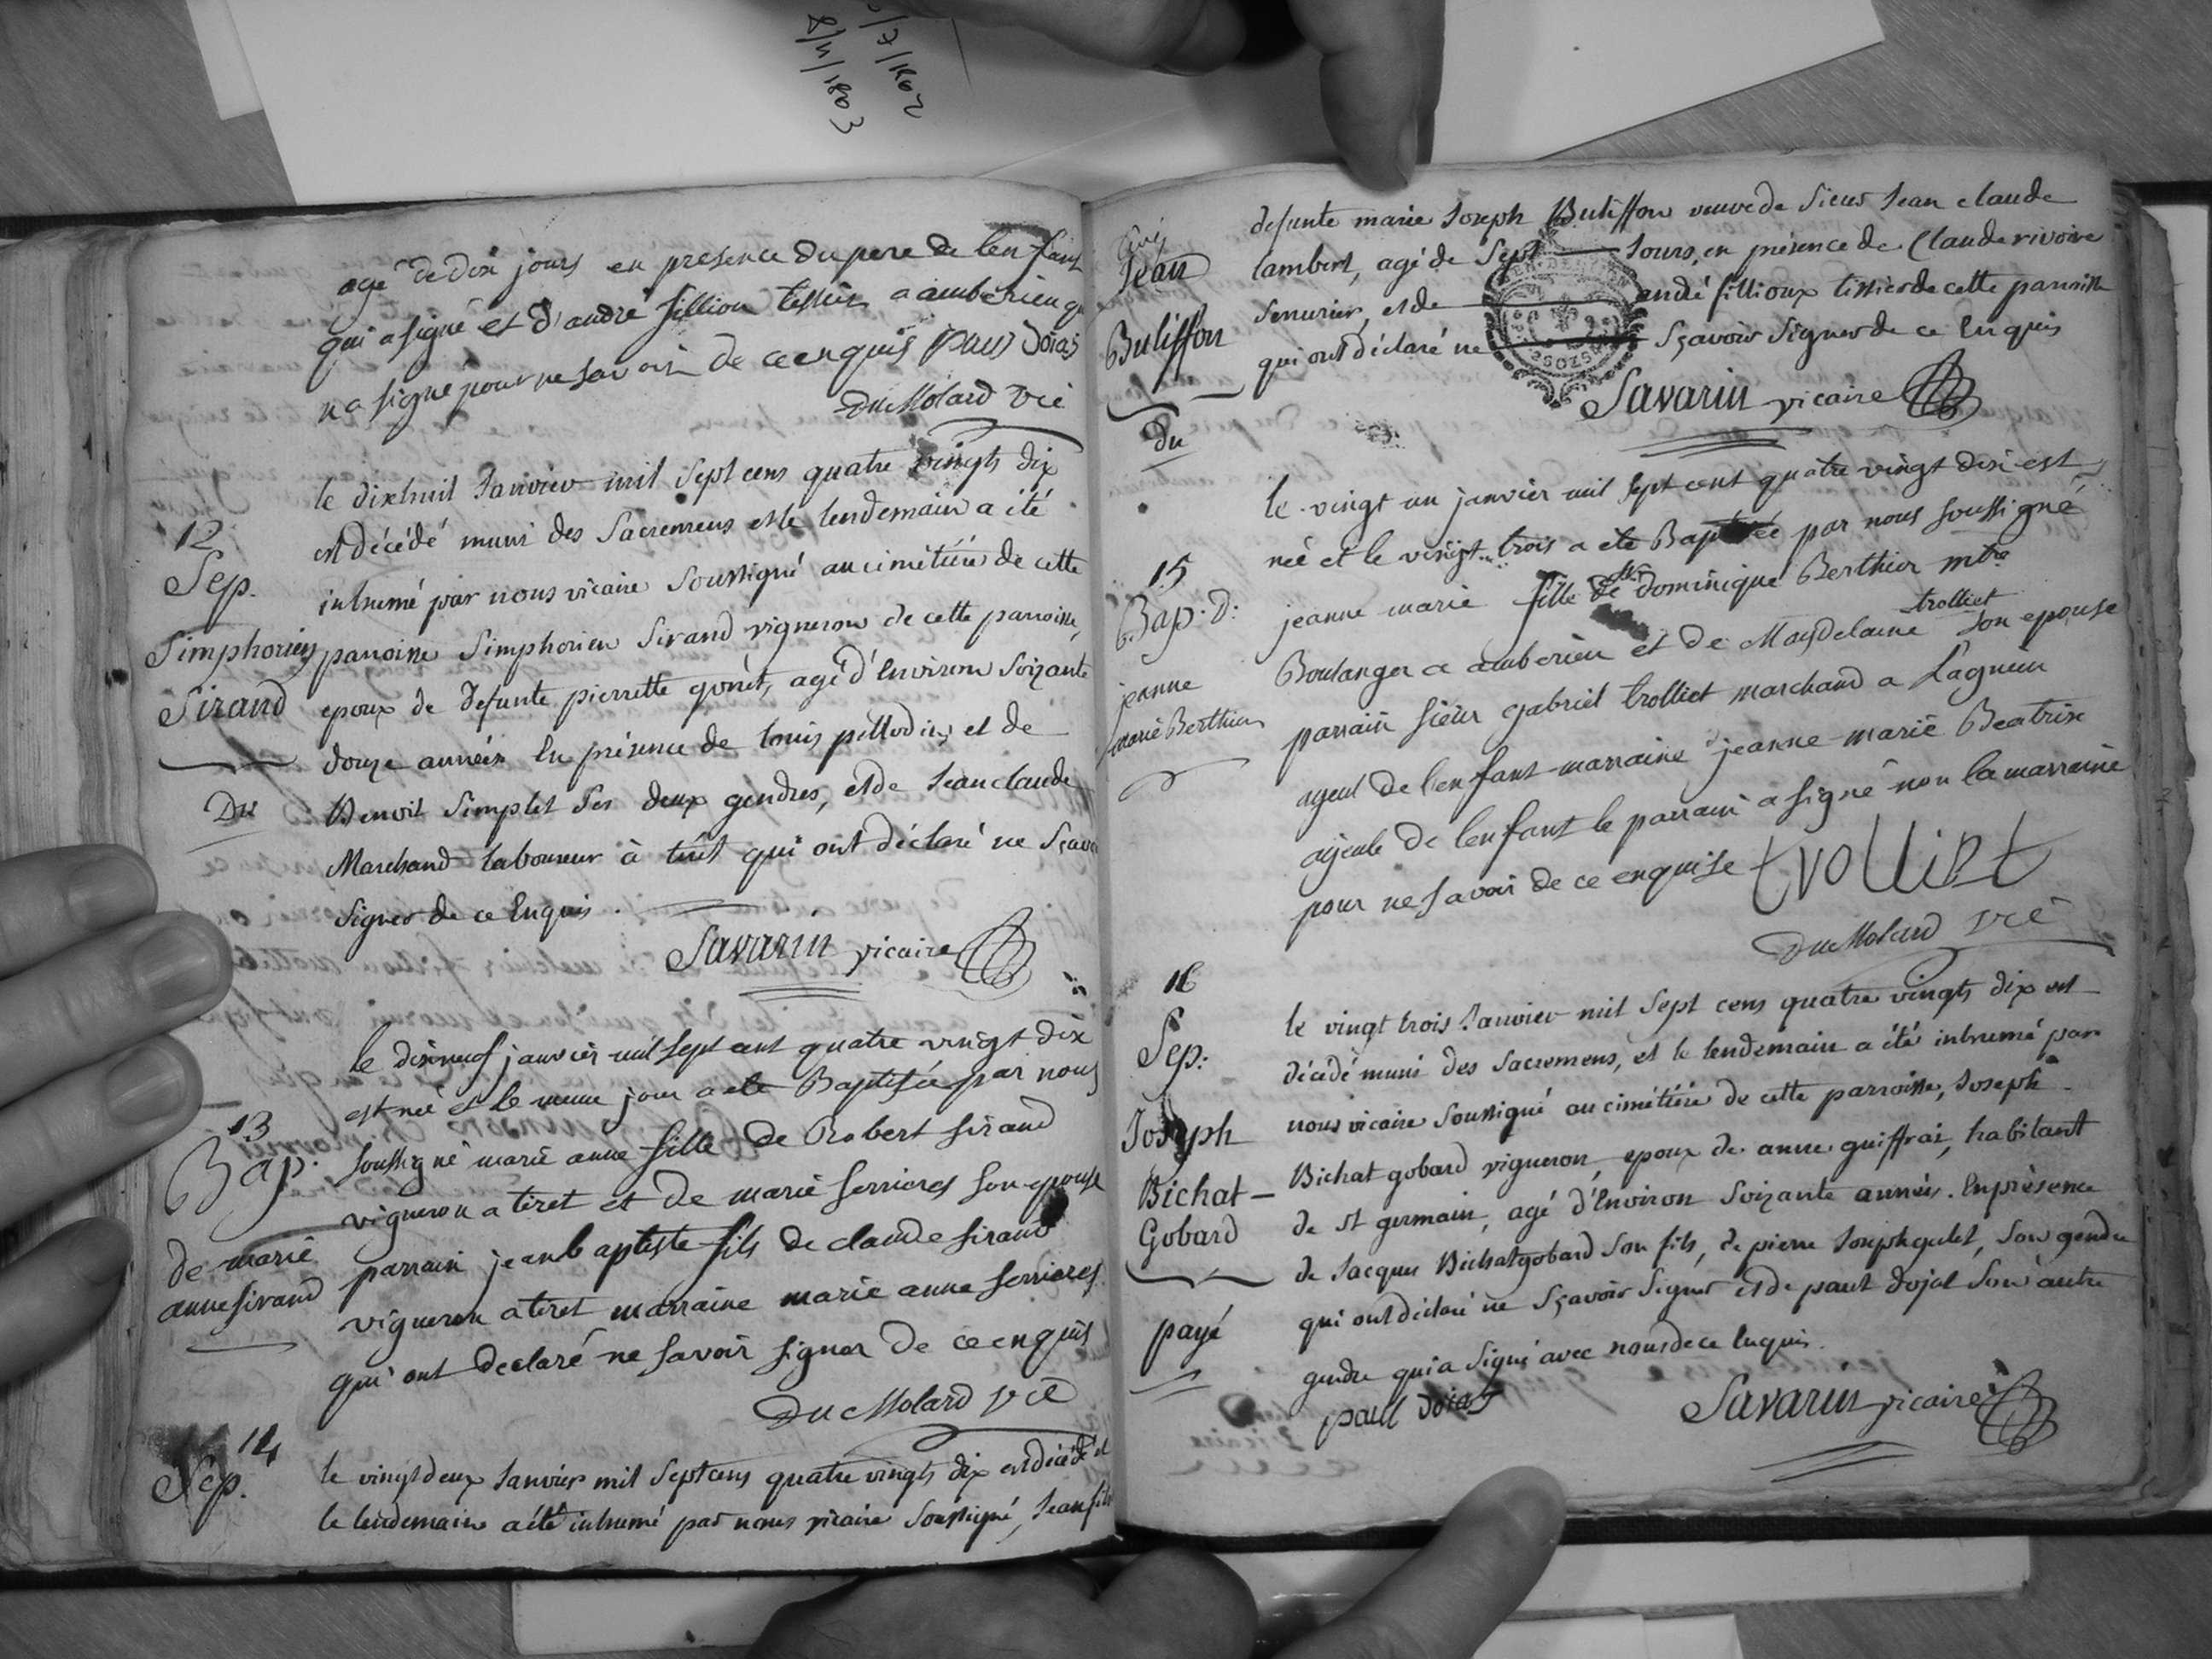 8/11/1803
agé de dix jours en presence du pere de l'enfant
qui a signé et d'andré fillion tissier a amberieu qui
n'a signé pour ne savoir de ce enquis paul Dojat
Du Molard Vic
12
Sep.
Simphorien
Sirand
Du
le dixhuit Janvier mil sept cens quatre vingts dix
est décédé muni des Sacremens et le lendemain a été
inhumé par nous vicaire soussigné au cimétière de cette
parroisse Simphorien Sirand vigneron de cette parroisse,
epoux de defunte pierrette gonet, agé d'Environ soixante
douze années En présence de louis pillodin, et de
Benoit Simplet Ses deux gendres, et de Jean claude
Marchand laboureur à tiret qui ont déclaré ne Sçavoir
Signer de ce Enquis.
Savarin vicaire
13
Bap.
de marie
anne sirand
le dixneuf janvier mil sept cent quatre vingt dix
est neé et le meme jour a ete Baptisée par nous
soussigné marie anne fille de Robert sirand
vigneron a tiret et de marie serrieres son epouse
parrain jean baptiste fils de claude sirand
vigneron a tiret marraine marie anne serrieres
qui ont declaré ne savoir signer de ce enquis
Du Molard Vic
14
Sep.
le vingtdeux Janvier mil sept cens quatre vingts dix est décédé et
le lendemain a été inhumé par nous vicaire soussigné, Jean fils
Jean
Buliffon
du
defunte marie Joseph Buliffon veuve de Sieur Jean claude
lambert, agé de Sept Jours, en présence de Claude rivoire
Serrurier, et de andré fillioux tissier de cette parroisse
qui ont déclaré ne Sçavoir Signer de ce Enquis
Savarin vicaire
15
Bap. d:
jeanne
marie Berthier
le vingt un janvier mil sept cent quatre vingt dix est
neé et le vingt trois a ete Baptisée par nous soussigné
jeanne marie fille de sr dominique Berthier mtre
Boulanger a amberieu et de Magdelaine trolliet son epouse
parrain sieur gabriel trolliet marchand a Lagneu
ayeul de l'enfant marraine jeanne marie Beatrix
ayeule de l'enfant le parrain a signé non la marraine
pour ne savoir de ce enquise trolliet
Du Molard Vic
16
Sep:
Joseph
Bichat-
Gobard
payé
le vingt trois Janvier mil sept cens quatre vingts dix est
décédé muni des Sacremens, et le lendemain a été inhumé par
nous vicaire soussigné au cimétière de cette parroisse, Joseph
Bichat gobard vigneron, epoux de anne guiffrai, habitant
de st germain, agé d'Environ Soixante années. En présence
de Jacques Bichatgobard son fils, de pierre Joseph gulet, son gendre
qui ont déclaré ne Sçavoir Signer et de paul dojat son autre
gendre qui a Signé avec nous de ce Enquis.
paul Dojat
Savarin vicaire